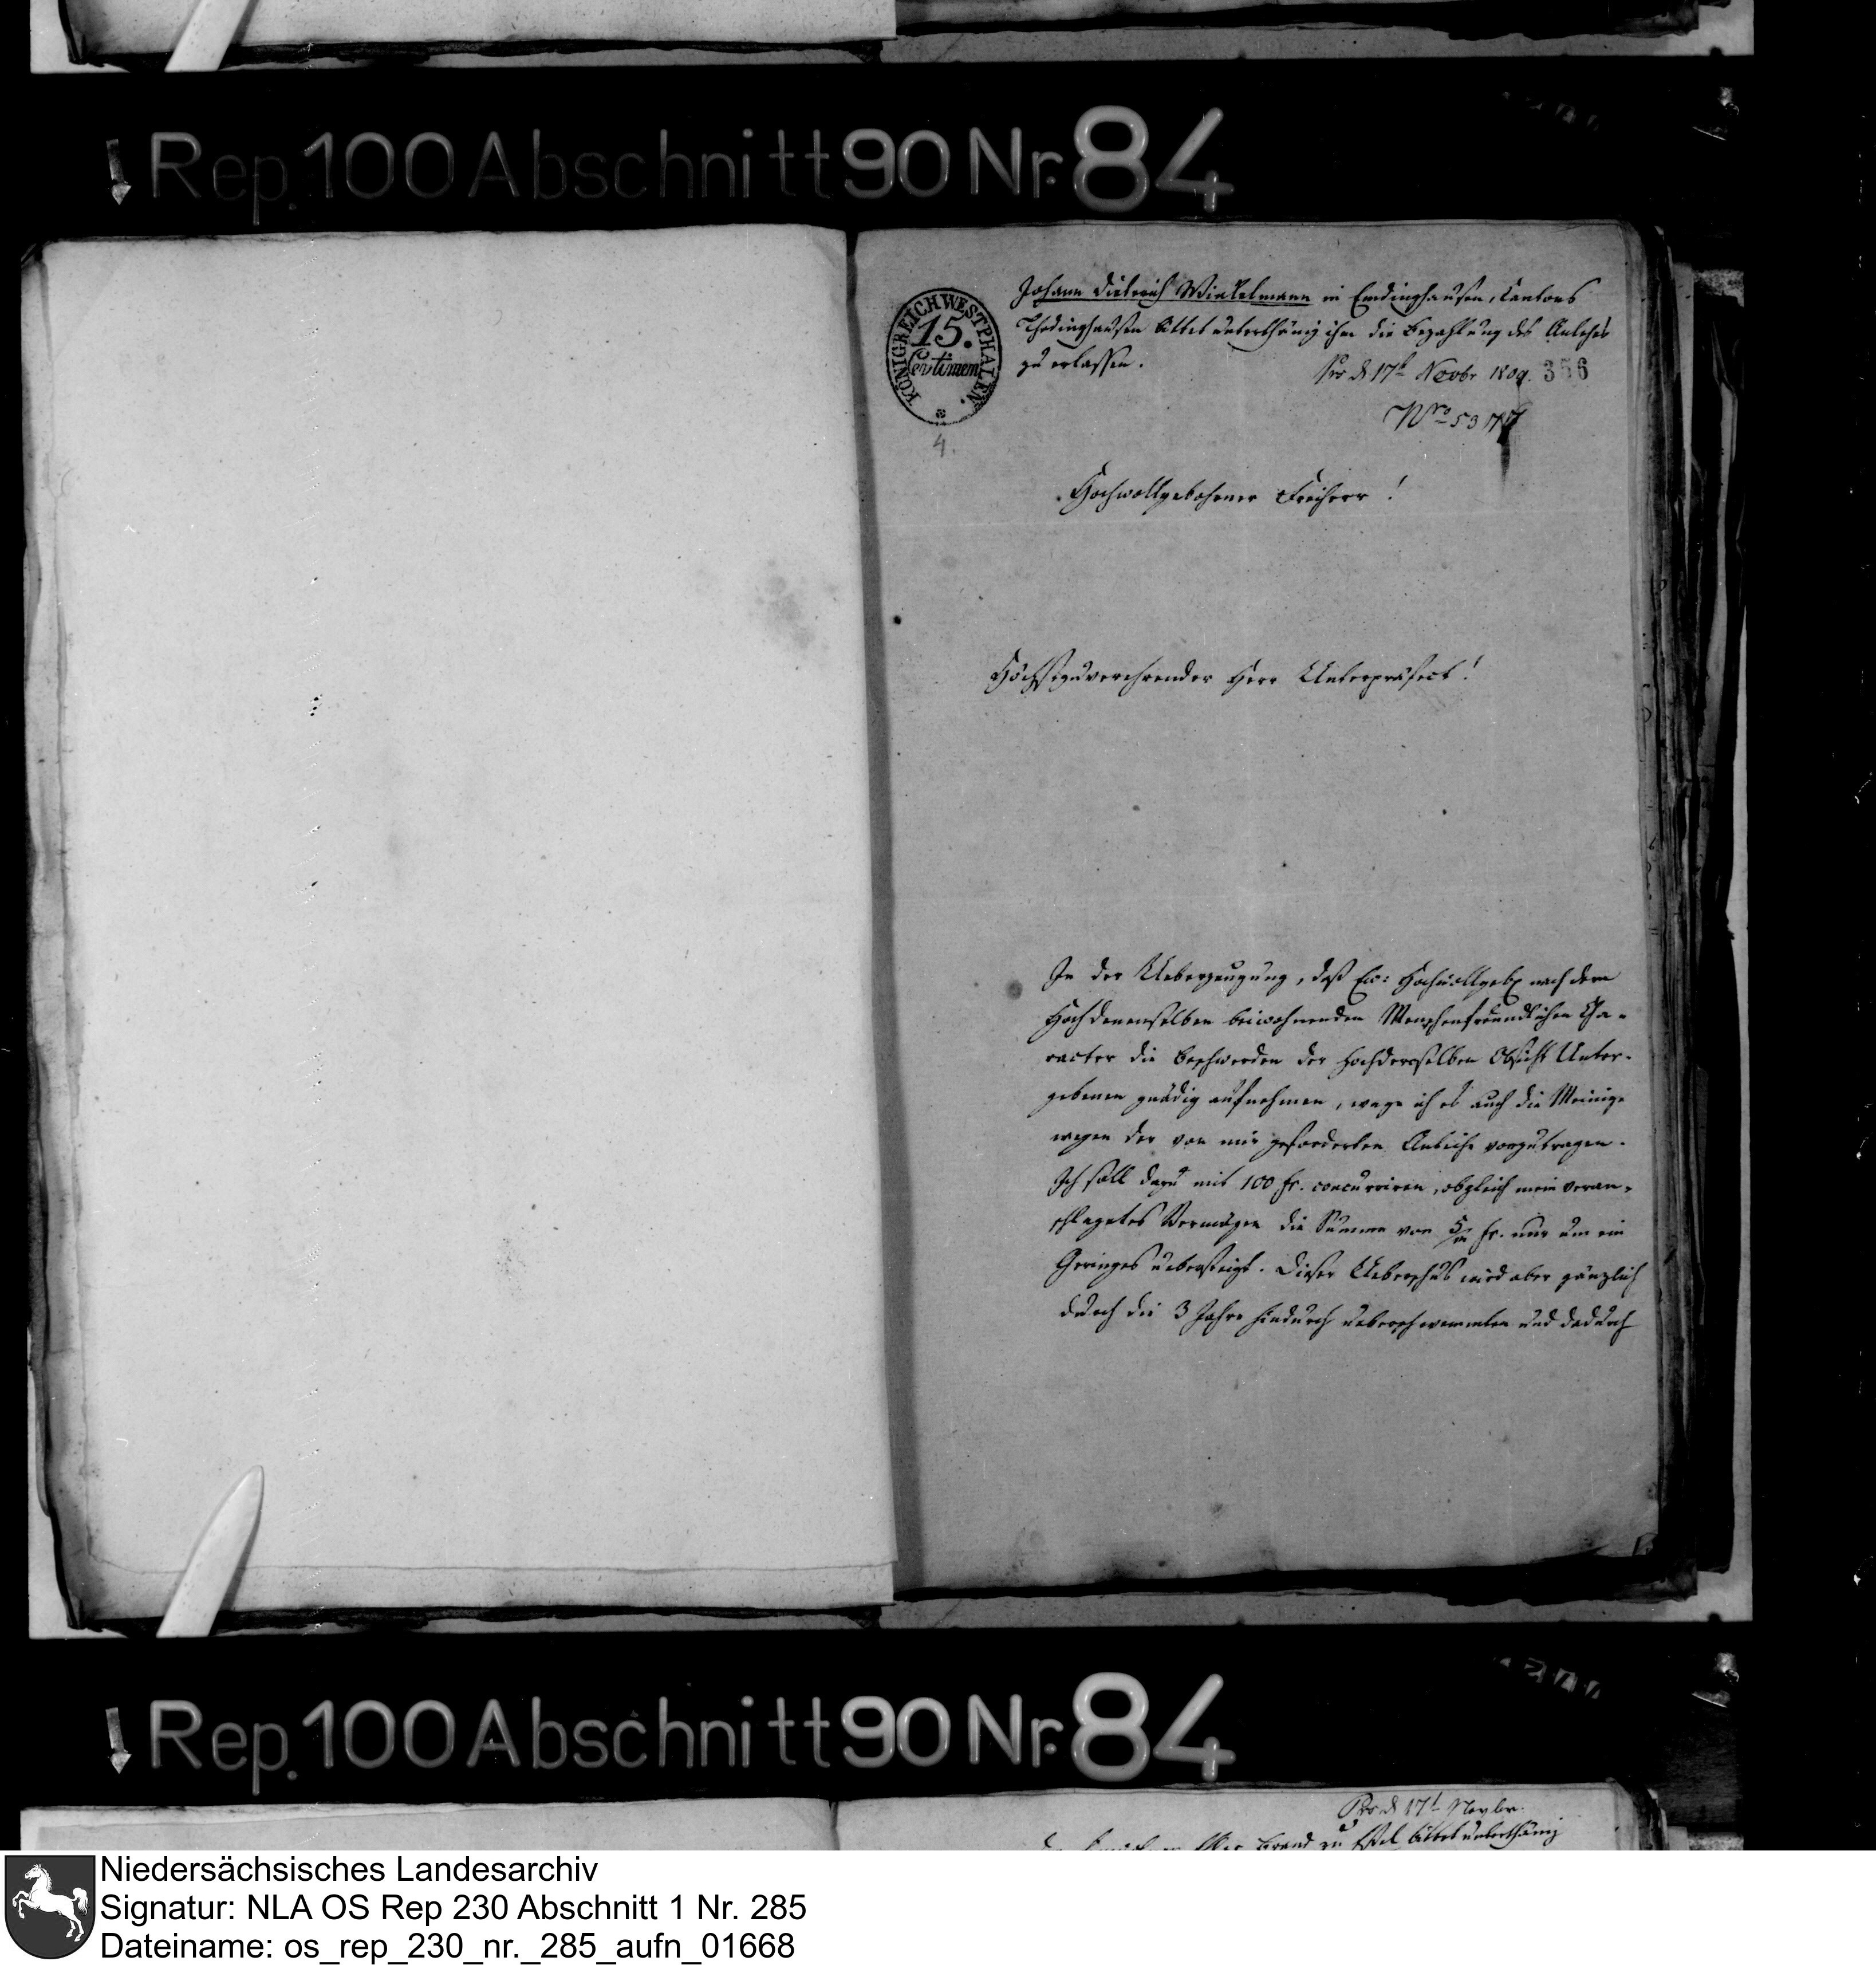 Rep. 100 Abschnitt 90 Nr. 84
KÖNIGREICH WESTPHALEN.
15.
Centimen
4.
Johann Dieterich Winkelmann in Emdinghausen, Cantons
Thedinghausen bittet unterthänig ihm die Bezahlung des Anlehns
zu erlassen.
Prs d 17t Novbr 1809. 356
Nro 5377
Hochwollgebohrner Freiherr!
Höchstzuverehrender Herr Unterpräfect!
In der Ueberzeugung, daß Ew: Hochwollgeb. nach dem
Hochdenenselben beiwohnenden Menschenfreundlichen Cha-
racter die Beschwerden der Hochderoselben Obsicht Unter-
gebenen gnädig aufnehmen, wage ich es auch die Meinige
wegen der von mir geforderten Anleihe vorzutragen.
Ich soll dazu mit 100 fr. concurriren, obgleich mein veran-
schlagetes Vermögen die Summe von 5/m fr. nur um ein
Geringes uebersteigt. Dieser Ueberschus wird aber gänzlich
durch die 3 Jahre hindurch ueberschwemmten und dadurch
Rep. 100 Abschnitt 90 Nr. 84
Prs d 17t Novbr.
Brand zu bittet unterthänig
Niedersächsisches Landesarchiv
Signatur: NLA OS Rep 230 Abschnitt 1 Nr. 285
Dateiname: os_rep_230_nr._285_aufn_01668